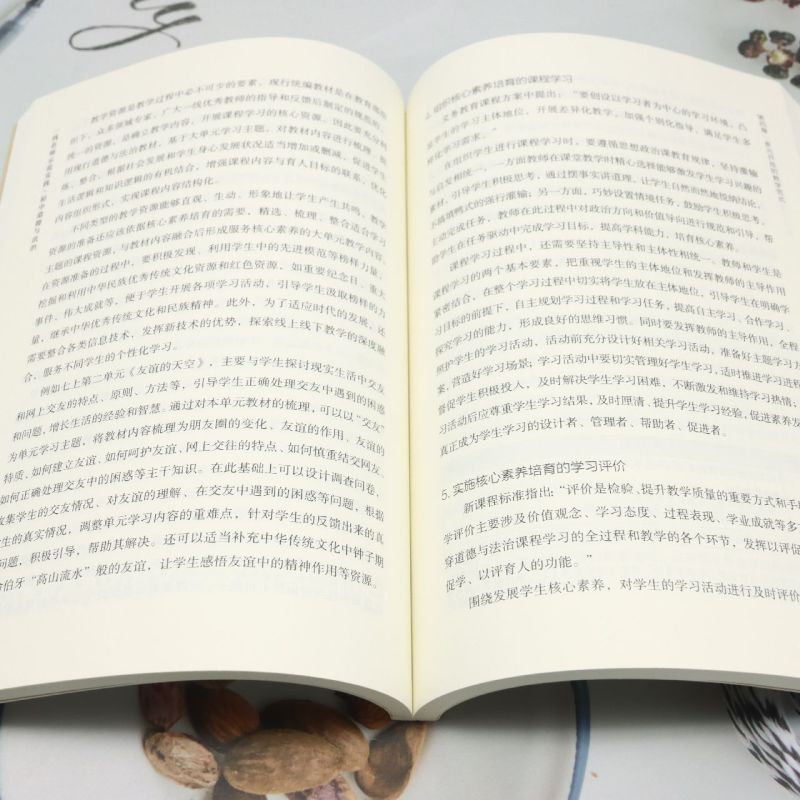 教学资源是教学过程中必不可少的要素，现行统编教材是在教育部组
织下，众多领域专家、广大一线优秀教师的指导和反馈后制定的规范的、
统一的资源，是确立教学内容、开展课程学习的核心资源。因此要充分利
用现行道德与法治教材，基于大单元学习主题，对教材内容进行梳理、提
炼、整合，根据社会发展和学生身心发展状况适当增加或删减，促进学生
生活逻辑和知识逻辑的有机结合，增强课程内容与育人目标的联系，优化
内容组织形式，实现课程内容结构化。
不同类型的教学资源能够直观、生动、形象地让学生产生共鸣，教学
资源的准备还应该依据核心素养培育的需要，精选、梳理、整合适合学习
主题的课程资源，与教材内容融合后形成服务核心素养的大单元教学内容。
在资源准备的过程中，要积极发现、利用学生中的先进模范等榜样力量，
挖掘和利用中华民族优秀传统文化资源和红色资源，如重要纪念日、重大
事件、伟大成就等，便于学生开展各项学习活动，引导学生汲取榜样的力
量，继承中华优秀传统文化和民族精神。此外，为了适应时代的发展，还
需要整合各类信息技术，发挥新技术的优势，探索线上线下教学的深度融
合，服务不同学生的个性化学习。
例如七上第二单元《友谊的天空》，主要与学生探讨现实生活中交友
和网上交友的特点、原则、方法等，引导学生正确处理交友中遇到的困惑
和问题，增长生活的经验和智慧。通过对本单元教材的梳理，可以以“交友”
为单元学习主题，将教材内容梳理为朋友圈的变化、友谊的作用、友谊的
特质、如何建立友谊、如何呵护友谊、网上交往的特点、如何慎重结交网友、
如何正确处理交友中的困惑等主干知识。在此基础上可以设计调查问卷，
收集学生的交友情况、对友谊的理解、在交友中遇到的困惑等问题，根据
生的真实情况，调整单元学习内容的重难点，针对学生的反馈出来的真
问题，积极引导，帮助其解决。还可以适当补充中华传统文化中钟子期
俞伯牙“高山流水”般的友谊，让学生感悟友谊中的精神作用等资源。
4. 组织核心素养培育的课程学习
义务教育课程方案中提出：“要创设以学习者为中心的学习环境，凸
显学生的学习主体地位，开展差异化教学，加强个别化指导，满足学生多
样化学习需求。”
在组织学生进行课程学习时，要遵循思想政治课教育规律，坚持灌输
与启发相统一。一方面教师在课堂教学时精心选择能够激发学生学习兴趣的
素材，引导学生积极思考，通过摆事实讲道理，让学生自然而然地接纳结论，
不搞填鸭式的强行灌输；另一方面，巧妙设置情境任务，鼓励学生积极思考，
主动完成任务，教师在此过程中对政治方向和价值导向进行规范和引导，帮
助学生在任务驱动中完成学习目标，提高学科能力，培育核心素养。
课程学习过程中，还需要坚持主导性和主体性相统一。教师和学生是
课程学习的两个基本要素，把重视学生的主体地位和发挥教师的主导作用
紧密结合，在整个学习过程中切实将学生放在主体地位，引导学生在明确学
习目标的前提下，自主规划学习过程和学习任务，提高自主学习、合作学习、
探究学习的能力，形成良好的思维习惯。同时要发挥教师的主导作用，全程
照护学生的学习活动，活动前充分设计好相关学习活动，准备好主题学习方
案，营造好学习场景；学习活动中要切实管理好学生学习，适时推进学习进程
督促学生积极投入，及时解决学生学习困难，不断激发和维持学习热情；
习活动后应尊重学生学习结果，及时厘清、提升学生学习经验，促进素养发
真正成为学生学习的设计者、管理者、帮助者、促进者。
5. 实施核心素养培育的学习评价
新课程标准指出：“评价是检验、提升教学质量的重要方式和手
学评价主要涉及价值观念、学习态度、过程表现、学业成就等多
穿道德与法治课程学习的全过程和教学的各个环节，发挥以评促
促学、以评育人的功能。”
围绕发展学生核心素养，对学生的学习活动进行及时评价